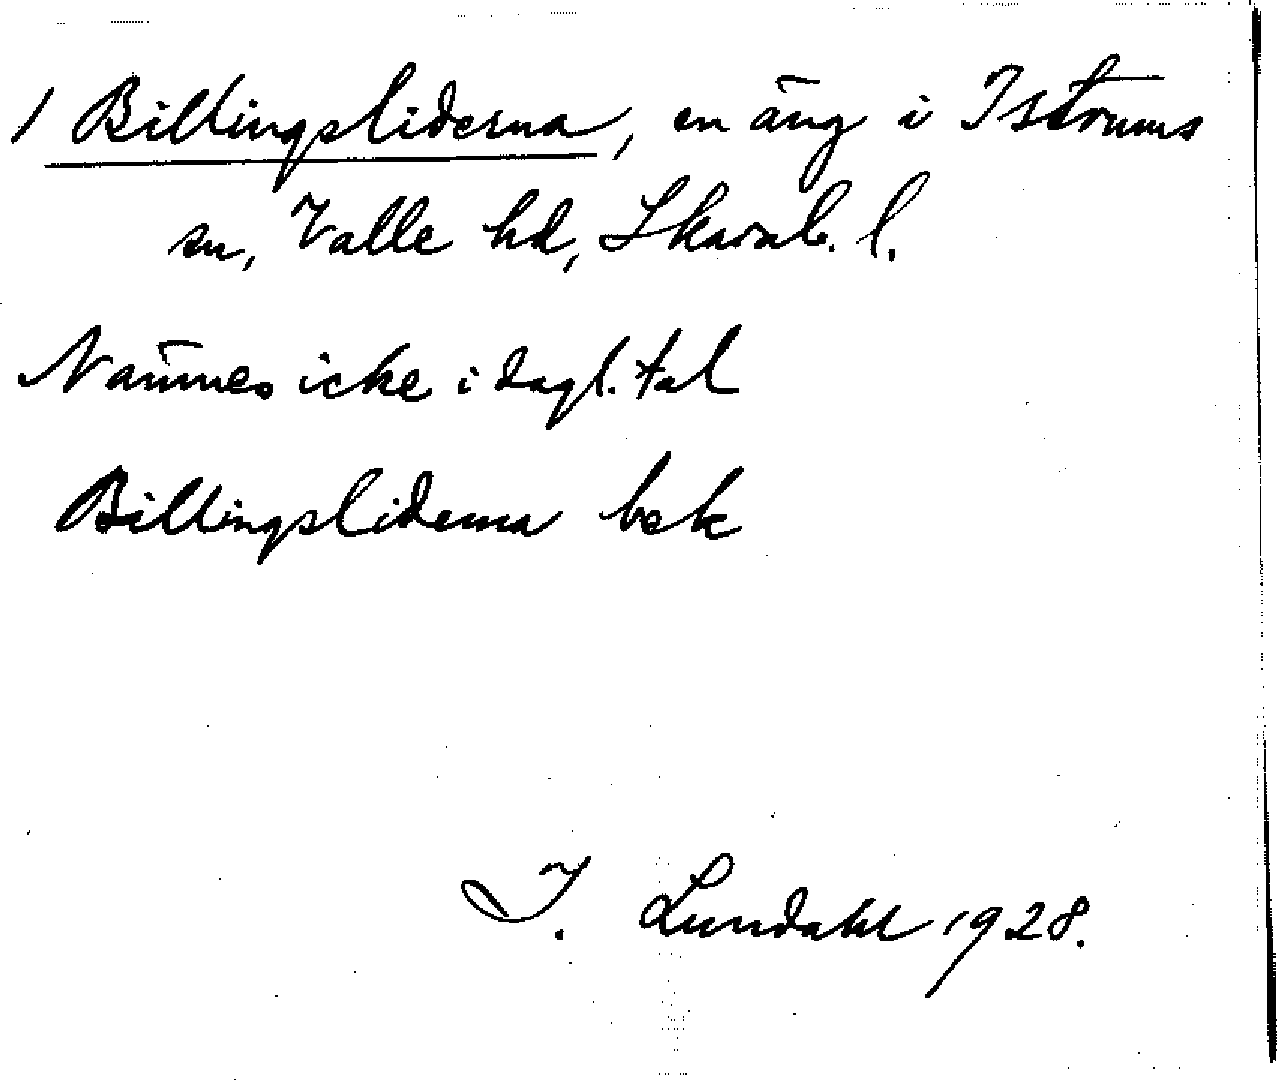 / Billingsliderna, en äng i Istrums
sn, Valle hd, Skarab. l.
Nämnes icke i dagl. tal
Billingsliderna bek
I. Lundahl 1928.